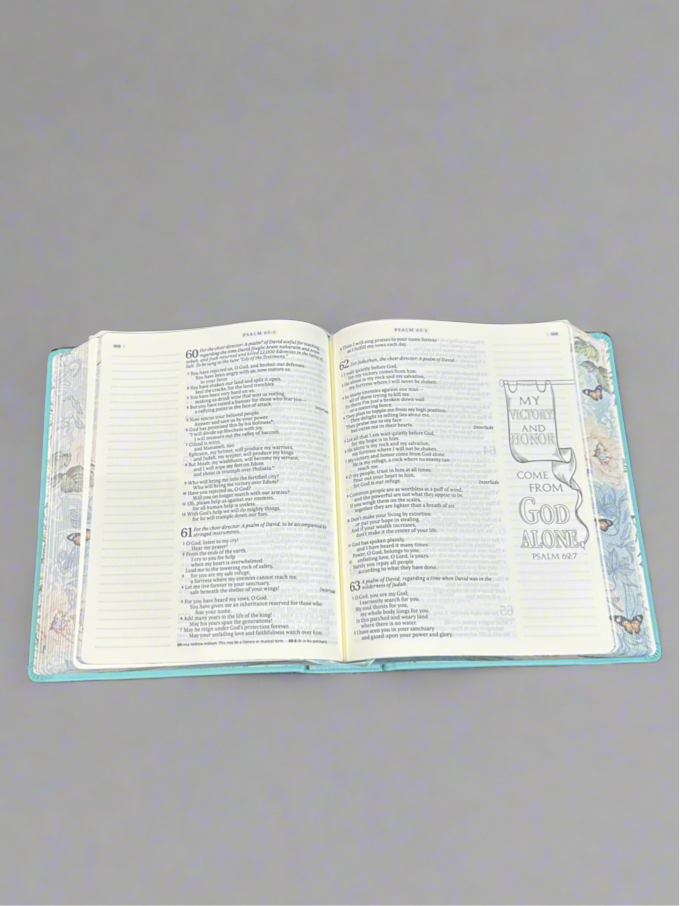 PSALM 60:1
60 For the choir director: A psalm of David useful for teaching,
regarding the time David fought Aram-naharaim and Aram-
zobah, and Joab returned and killed 12,000 Edomites in the Valley of
Salt. To be sung to the tune "Lily of the Testimony."
1 You have rejected us, O God, and broken our defenses.
You have been angry with us; now restore us
to your favor.
2 You have shaken our land and split it open.
Seal the cracks, for the land trembles.
3 You have been very hard on us,
making us drink wine that sent us reeling.
4 But you have raised a banner for those who fear you—
a rallying point in the face of attack.
5 Now rescue your beloved people.
Answer and save us by your power.
6 God has promised this by his holiness:
"I will divide up Shechem with joy.
I will measure out the valley of Succoth.
7 Gilead is mine,
and Manasseh, too.
Ephraim, my helmet, will produce my warriors,
and Judah, my scepter, will produce my kings.
8 But Moab, my washbasin, will become my servant,
and I will wipe my feet on Edom
and shout in triumph over Philistia."
9 Who will bring me into the fortified city?
Who will bring me victory over Edom?
10 Have you rejected us, O God?
Will you no longer march with our armies?
11 Oh, please help us against our enemies,
for all human help is useless.
12 With God's help we will do mighty things,
for he will trample down our foes.
61 For the choir director: A psalm of David, to be accompanied by
stringed instruments.
1 O God, listen to my cry!
Hear my prayer!
2 From the ends of the earth,
I cry to you for help
when my heart is overwhelmed.
Lead me to the towering rock of safety,
3 for you are my safe refuge,
a fortress where my enemies cannot reach me.
4 Let me live forever in your sanctuary,
safe beneath the shelter of your wings!
Interlude
5 For you have heard my vows, O God.
You have given me an inheritance reserved for those who
fear your name.
6 Add many years to the life of the king!
May his years span the generations!
7 May he reign under God's protection forever.
May your unfailing love and faithfulness watch over him.
8 Then I will sing praises to your name forever
as I fulfill my vows each day.
62 For Jeduthun, the choir director: A psalm of David.
1 I wait quietly before God,
for my victory comes from him.
2 He alone is my rock and my salvation,
my fortress where I will never be shaken.
3 So many enemies against one man—
all of them trying to kill me.
To them I'm just a broken-down wall
or a tottering fence.
4 They plan to topple me from my high position.
They delight in telling lies about me.
They praise me to my face
but curse me in their hearts.
Interlude
5 Let all that I am wait quietly before God,
for my hope is in him.
6 He alone is my rock and my salvation,
my fortress where I will not be shaken.
7 My victory and honor come from God alone.
He is my refuge, a rock where no enemy can
reach me.
8 O my people, trust in him at all times.
Pour out your heart to him,
for God is our refuge.
Interlude
9 Common people are as worthless as a puff of wind,
and the powerful are not what they appear to be.
If you weigh them on the scales,
together they are lighter than a breath of air.
10 Don't make your living by extortion
or put your hope in stealing.
And if your wealth increases,
don't make it the center of your life.
11 God has spoken plainly,
and I have heard it many times:
Power, O God, belongs to you;
12 unfailing love, O Lord, is yours.
Surely you repay all people
according to what they have done.
63 A psalm of David, regarding a time when David was in the
wilderness of Judah.
1 O God, you are my God;
I earnestly search for you.
My soul thirsts for you;
my whole body longs for you
in this parched and weary land
where there is no water.
2 I have seen you in your sanctuary
and gazed upon your power and glory.
MY
VICTORY
AND
HONOR
COME
FROM
GOD
ALONE.
PSALM 62:7